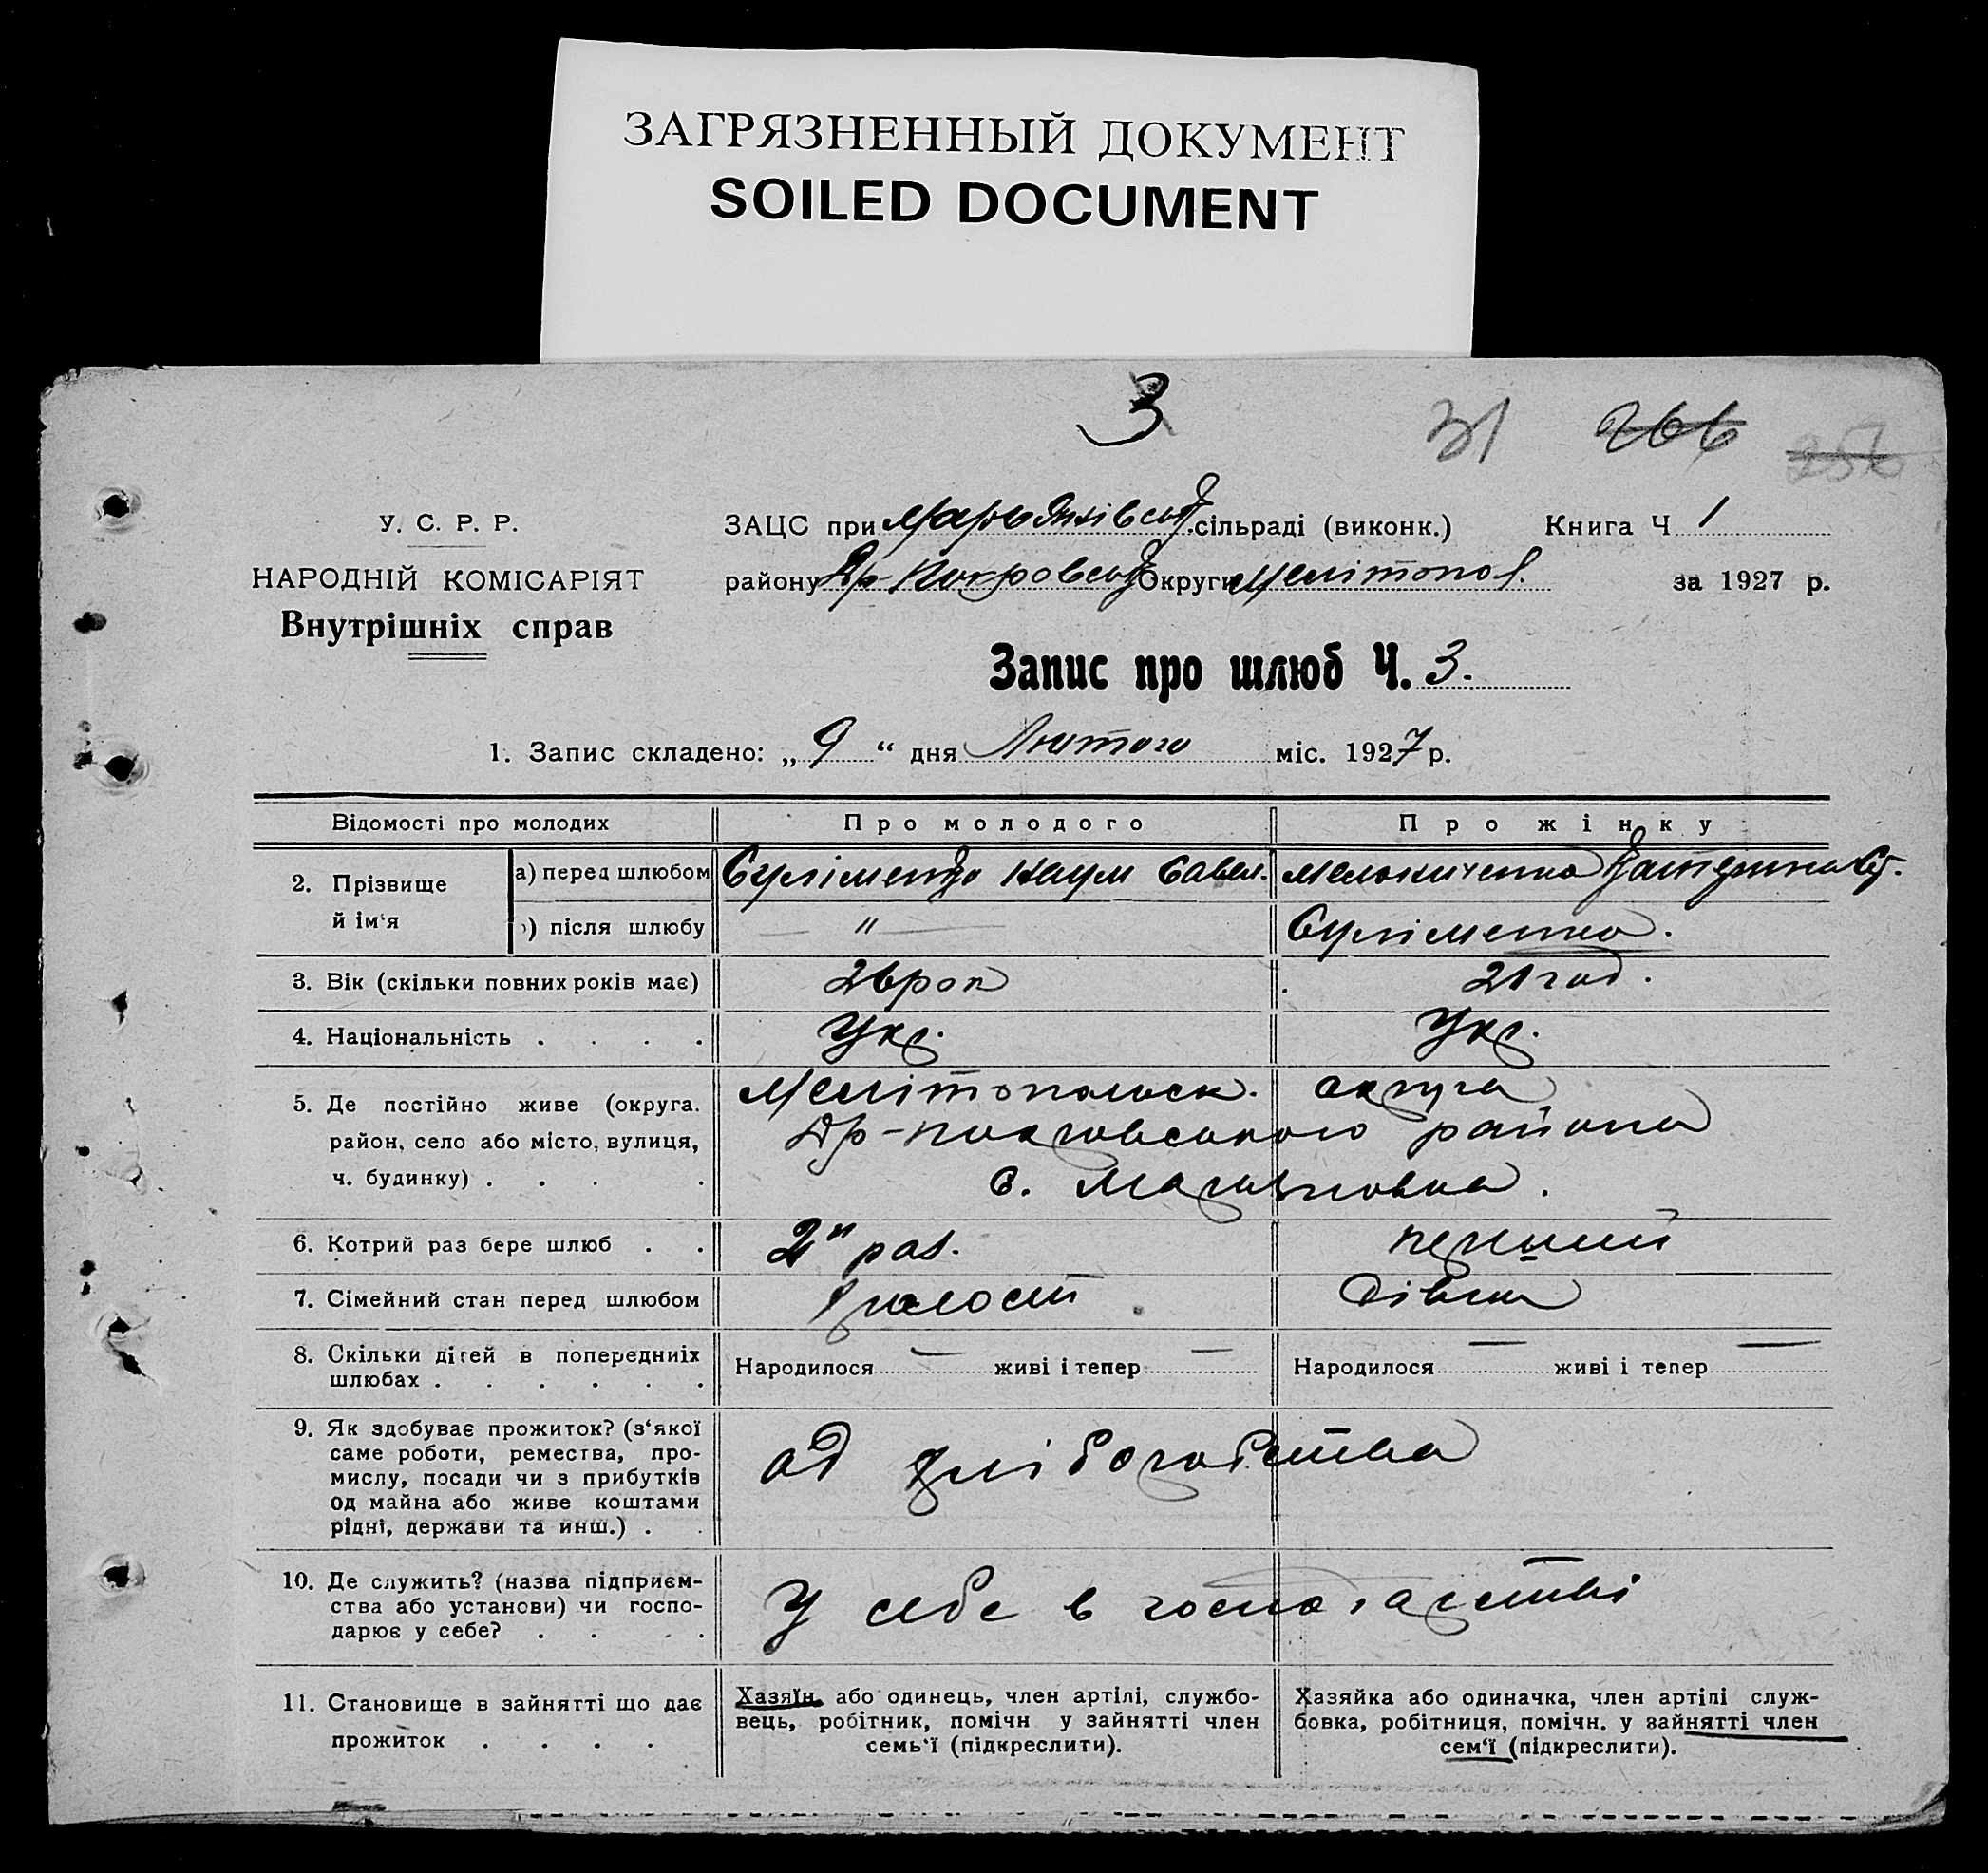 ЗАГРЯЗНЕННЫЙ ДОКУМЕНТ
SOILED DOCUMENT
3
31 266 256
У. С. Р. Р.
НАРОДНІЙ КОМІСАРІЯТ
Внутрішніх справ
ЗАЦС при Мар'янівськ. сільраді (виконк.) Книга Ч 1
району Др-Покровськ Округи Мелітопол. за 1927 р.
Запис про шлюб Ч. 3.
1. Запис складено: „ 9 “ дня Лютого міс. 1927 р.
Відомості про молодих Про молодого Про жінку
2. Прізвище й ім‘я
а) перед шлюбом Суліменко Наум Савел. Мельниченко Катерина
) після шлюбу " Суліменко.
3. Вік (скільки повних років має) 26 рок 21 год.
4. Національність . . . . Укр. Укр.
5. Де постійно живе (округа. район, село або місто, вулиця, ч. будинку) . . . .
Мелітопольск. округа
Др-покровського района
с. Марьяновка.
6. Котрий раз бере шлюб . . 2й раз. перший
7. Сімейний стан перед шлюбом холост дівка
8. Скільки дітей в попередниіх шлюбах . . . . . .
Народилося — живі і тепер — Народилося — живі і тепер —
9. Як здобуває прожиток? (з‘якої
саме роботи, ремества, про-
мислу, посади чи з прибутків
од майна або живе коштами
рідні, держави та инш.) . .
од хліборобства
10. Де служить? (назва підприєм-
ства або установи) чи госпо-
дарює у себе? . . . .
У себе в господарстві
11. Становище в зайнятті що дає
прожиток . . . .
Хазяїн або одинець, член артілі, службо-
вець, робітник, помічн у зайнятті член
семь‘ї (підкреслити).
Хазяйка або одиначка, член артілі служ-
бовка, робітниця, помічн. у зайнятті член
сем‘ї (підкреслити).